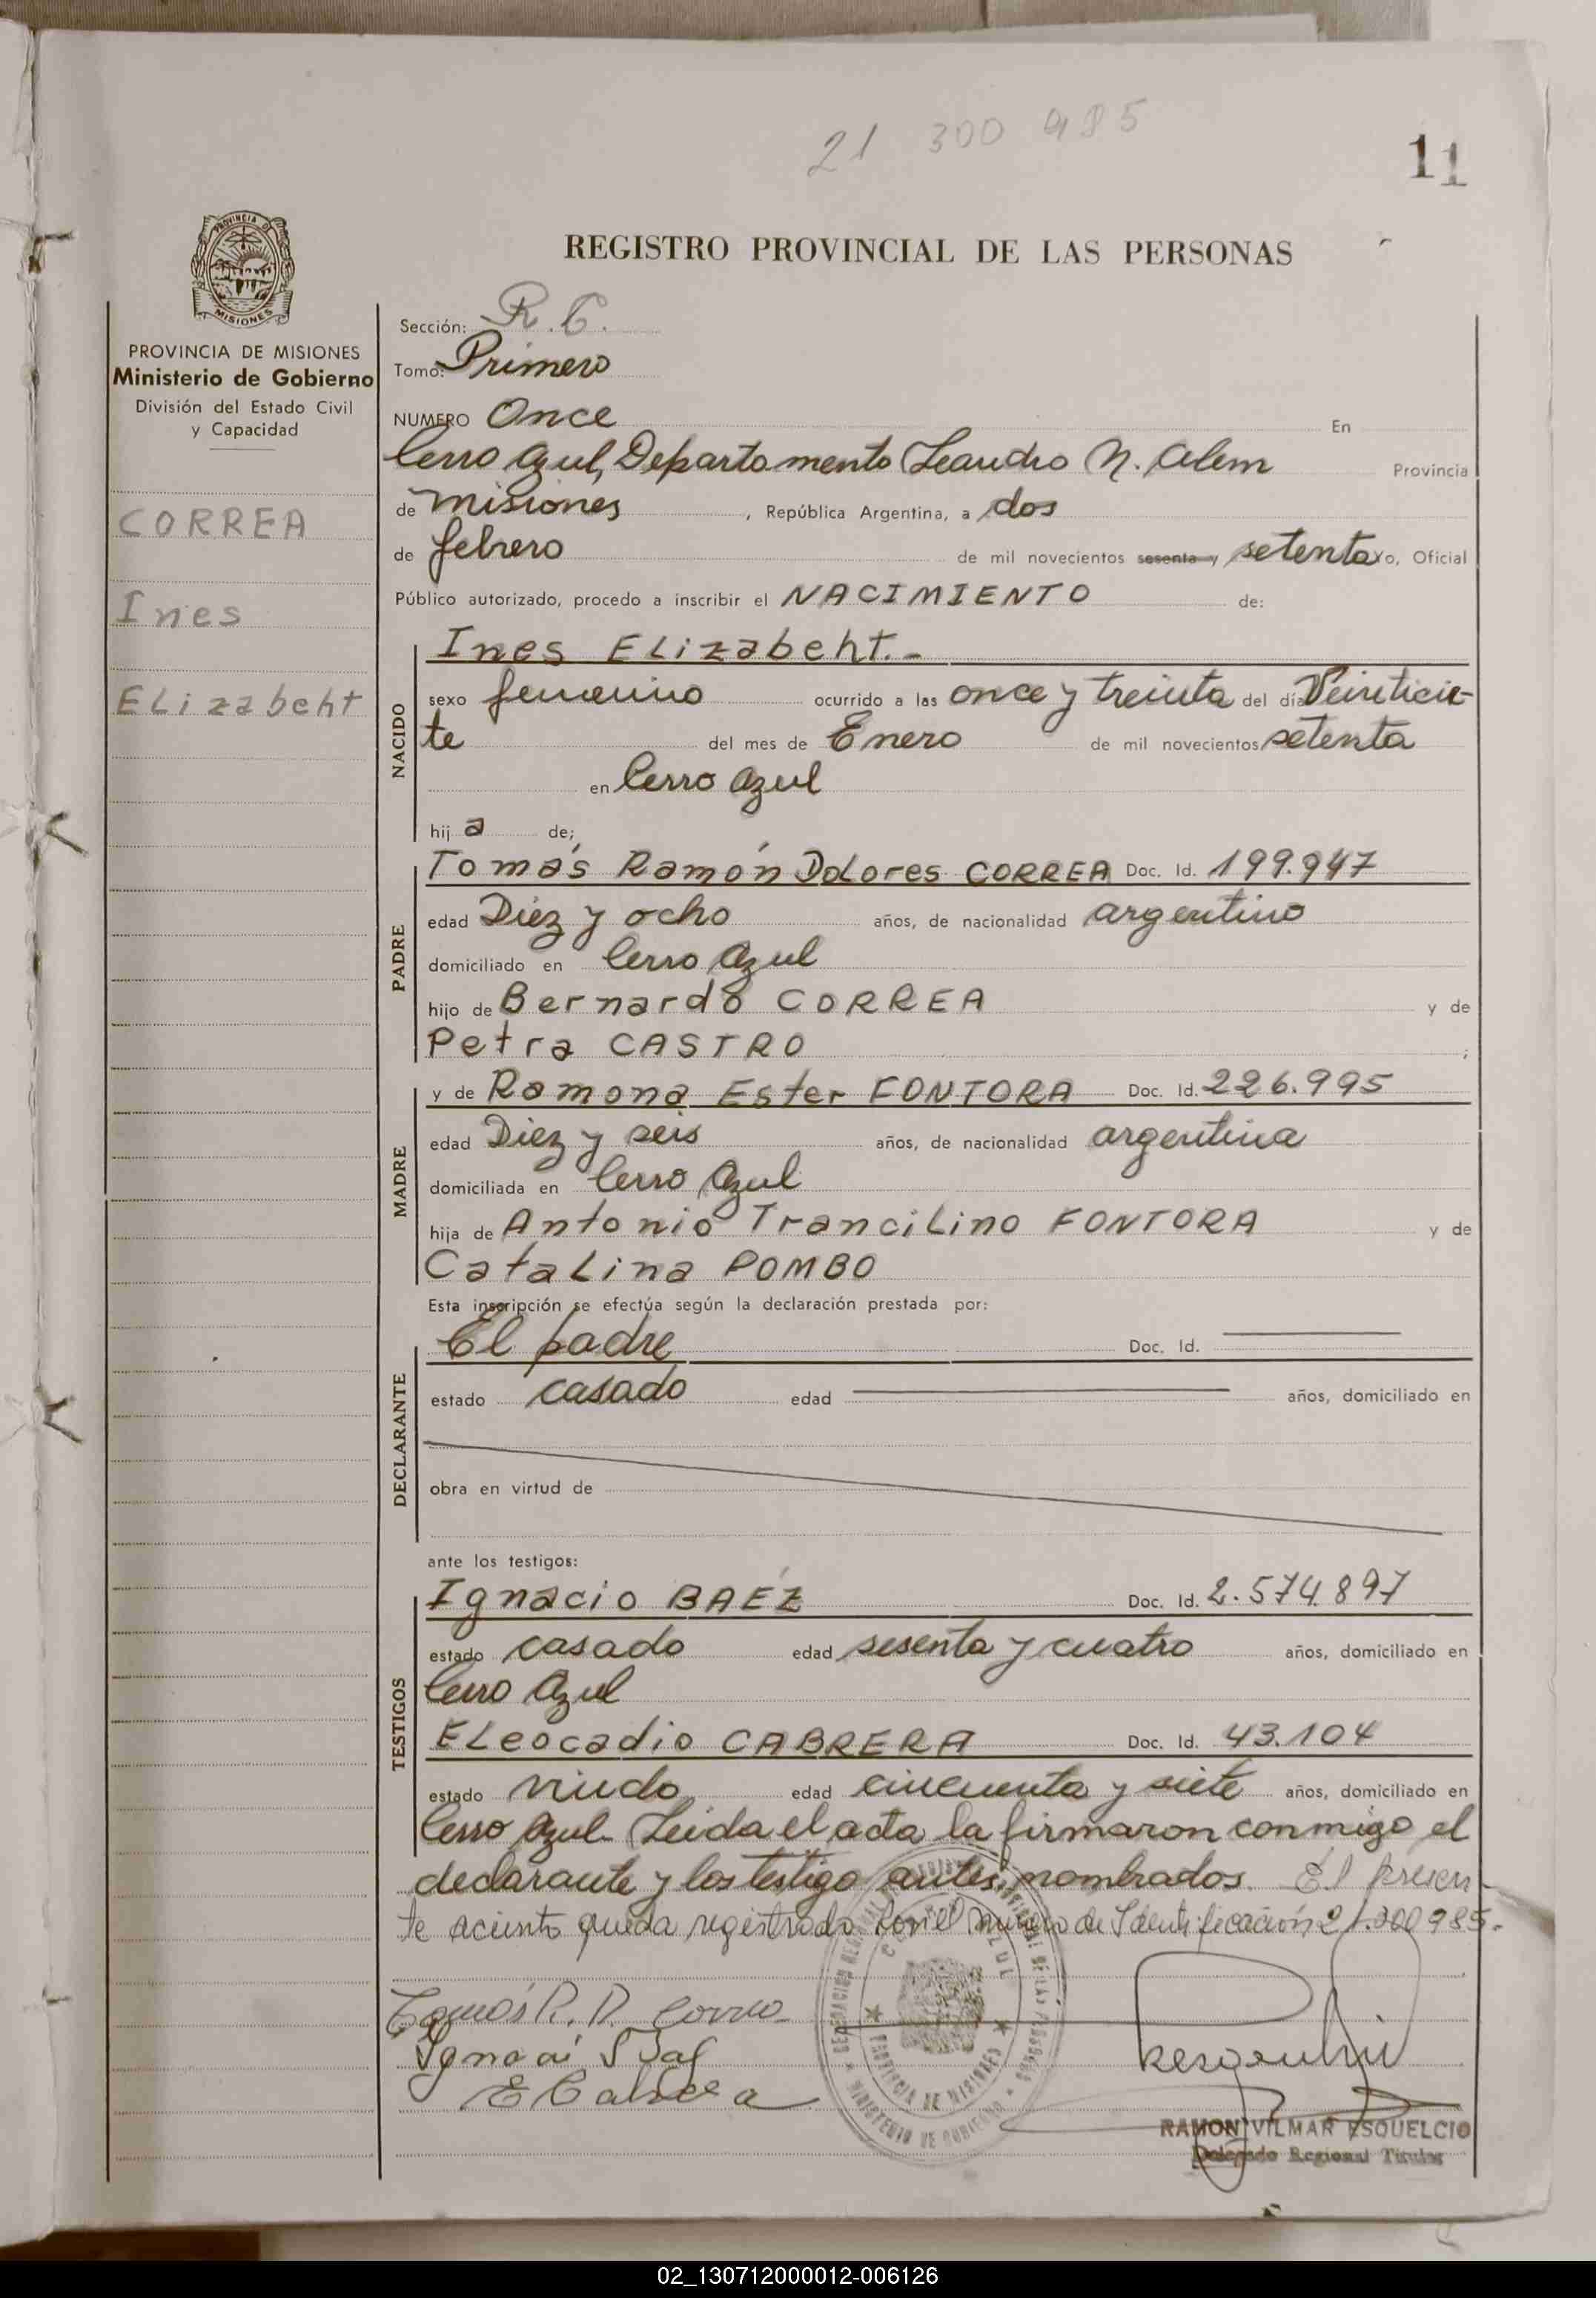 21 300 985
11
PROVINCIA DE
MISIONES
REGISTRO PROVINCIAL DE LAS PERSONAS
PROVINCIA DE MISIONES
Ministerio de Gobierno
División del Estado Civil
y Capacidad
CORREA
Ines
ELizabeht
Sección: R.C.
Tomo: Primero
NUMERO Once En
Cerro Azul, Departamento Leandro N. Alem Provincia
de Misiones, República Argentina, a dos
de febrero de mil novecientos sesenta y setenta yo, Oficial
Público autorizado, procedo a inscribir el NACIMIENTO de:
NACIDO
Ines ELizabeht.-
sexo femenino ocurrido a las once y treinta del día Veinticie-
te del mes de Enero de mil novecientos setenta
en Cerro Azul
hij a de;
PADRE
Tomás Ramón DoLores CORREA Doc. Id. 199.947
edad Diez y ocho años, de nacionalidad argentino
domiciliado en Cerro Azul
hijo de Bernardo CORREA y de
Petra CASTRO ;
MADRE
y de Ramona Ester FONTORA Doc. Id. 226.995
edad Diez y seis años, de nacionalidad argentina
domiciliada en Cerro Azul
hija de Antonio TranciLino FONTORA y de
CataLina POMBO
Esta inscripción se efectúa según la declaración prestada por:
DECLARANTE
El padre Doc. Id.
estado casado edad años, domiciliado en
obra en virtud de
ante los testigos:
TESTIGOS
Ignacio BAÉZ Doc. Id. 2.574.897
estado casado edad sesenta y cuatro años, domiciliado en
Cerro Azul
ELeocadio CABRERA Doc. Id. 43.104
estado viudo edad cincuenta y siete años, domiciliado en
Cerro Azul. Leida el acta la firmaron conmigo el
declarante y los testigo antes nombrados. El presen-
te aciento queda registrado con el numero de Identificación 21.300985.
Tomás R. D. Correa
E Cabrera
PROVINCIA DE MISIONES
MINISTERIO DE GOBIERNO
RAMON VILMAR ESQUELCIO
Delegado Regional Titular
02_130712000012-006126